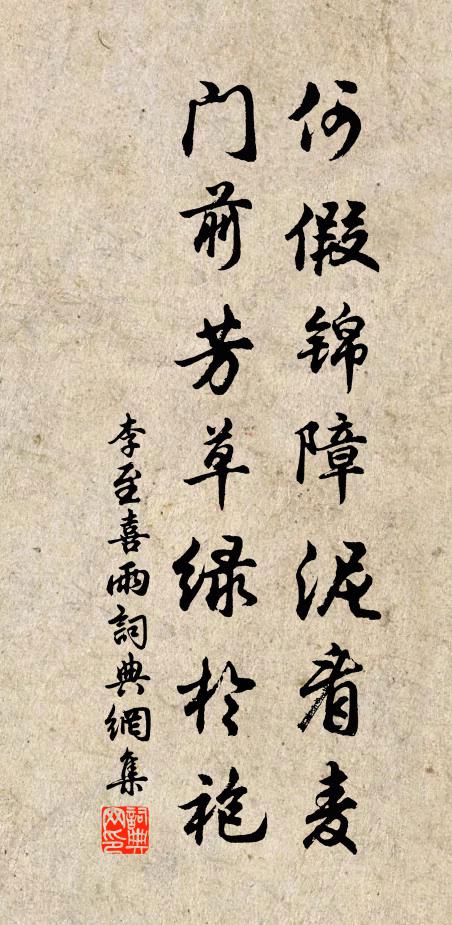 何假锦障泥看麦
门前芳草绿于袍
李至喜雨詞典網集
詞典网印